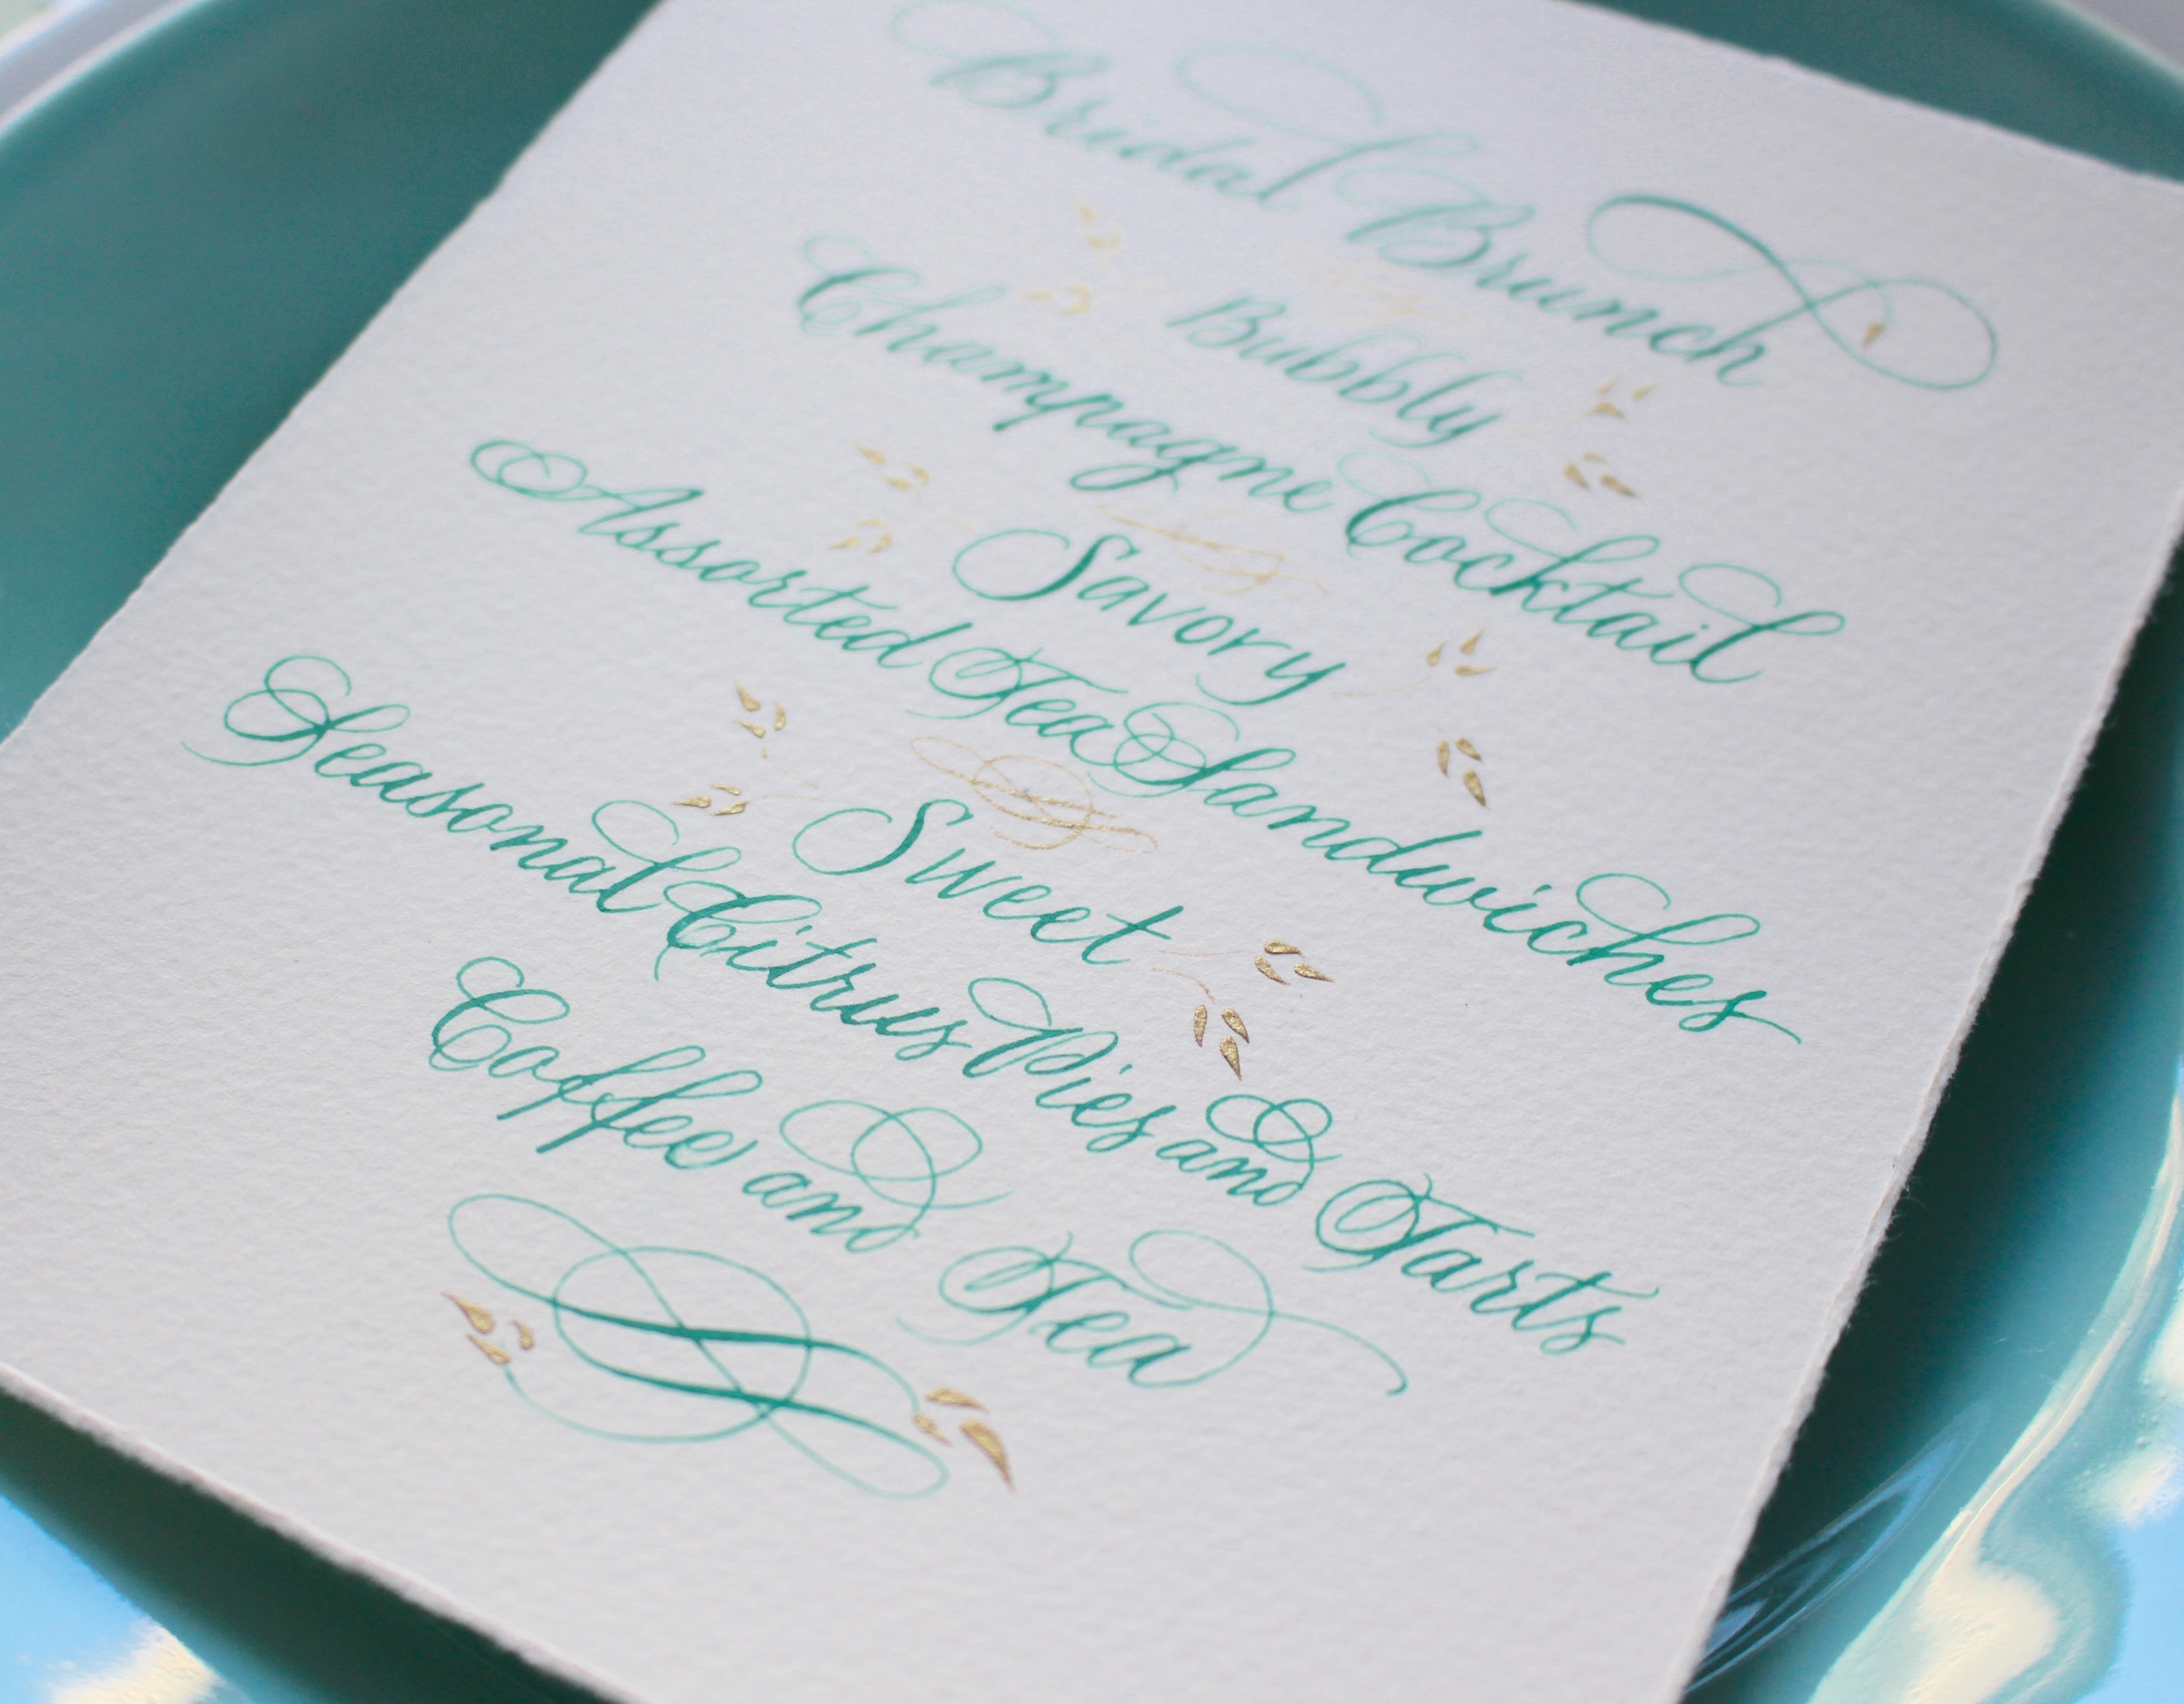 Bridal Brunch
Bubbly
Champagne Cocktail
Savory
Assorted Tea Sandwiches
Sweet
Seasonal Citrus Pies and Tarts
Coffee and Tea